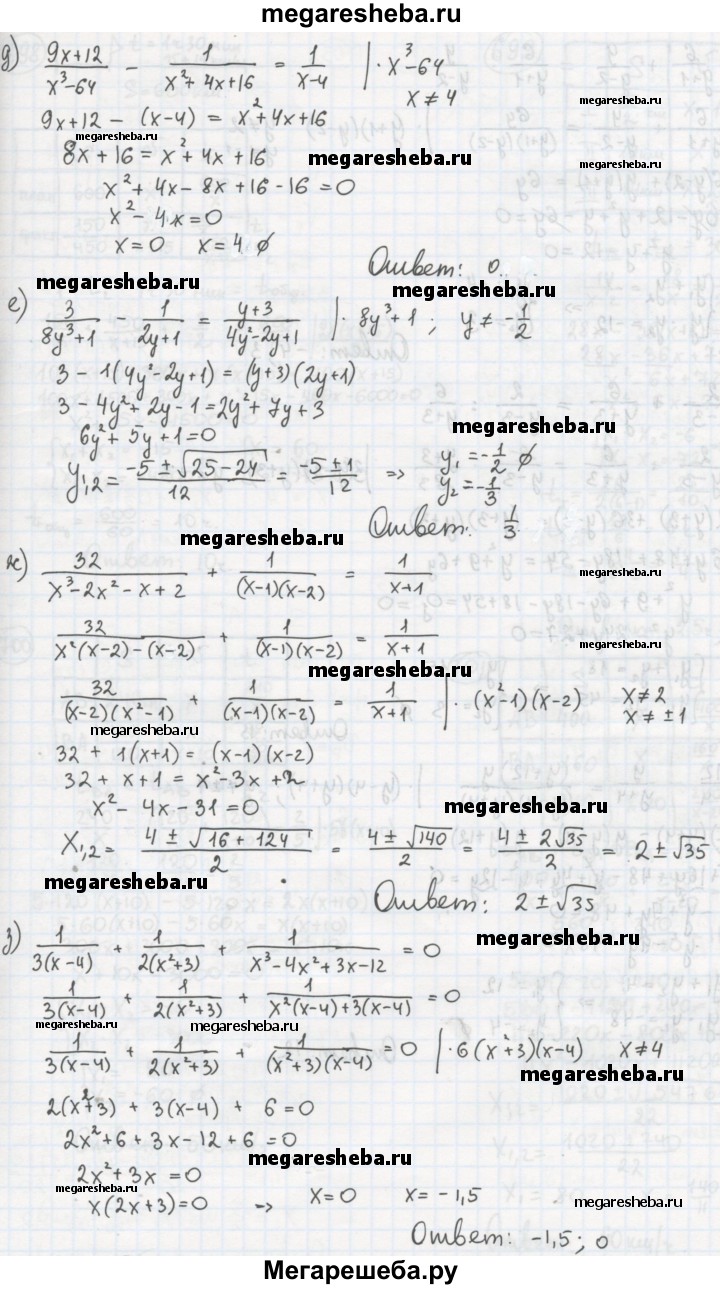 megaresheba.ru
д) (9x+12)/(x³-64) - 1/(x²+4x+16) = 1/(x-4) | · x³-64
x ≠ 4
megaresheba.ru
9x+12 - (x-4) = x²+4x+16
megaresheba.ru
8x+16 = x²+4x+16
megaresheba.ru
megaresheba.ru
x²+4x-8x+16-16=0
x²-4x=0
x=0 x=4 ∅
Ответ: 0.
megaresheba.ru
megaresheba.ru
е) 3/(8y³+1) - 1/(2y+1) = (y+3)/(4y²-2y+1) | · 8y³+1 ; y ≠ -1/2
3 - 1(4y²-2y+1) = (y+3)(2y+1)
3 - 4y²+2y-1 = 2y²+7y+3
megaresheba.ru
6y²+5y+1=0
y₁,₂ = (-5±√(25-24))/12 = (-5±1)/12 => y₁=-1/2 ∅
y₂=-1/3
Ответ: 1/3.
megaresheba.ru
ж) 32/(x³-2x²-x+2) + 1/((x-1)(x-2)) = 1/(x+1)
megaresheba.ru
32/(x²(x-2)-(x-2)) + 1/((x-1)(x-2)) = 1/(x+1)
megaresheba.ru
megaresheba.ru
32/((x-2)(x²-1)) + 1/((x-1)(x-2)) = 1/(x+1) | · (x²-1)(x-2) x≠2
x≠±1
32 + 1(x+1) = (x-1)(x-2)
32 + x+1 = x²-3x+2
x²-4x-31=0
megaresheba.ru
x₁,₂ = (4±√(16+124))/2 = (4±√140)/2 = (4±2√35)/2 = 2±√35
megaresheba.ru
Ответ: 2±√35
megaresheba.ru
з) 1/(3(x-4)) + 1/(2(x²+3)) + 1/(x³-4x²+3x-12) = 0
1/(3(x-4)) + 1/(2(x²+3)) + 1/(x²(x-4)+3(x-4)) = 0
megaresheba.ru
megaresheba.ru
1/(3(x-4)) + 1/(2(x²+3)) + 1/((x²+3)(x-4)) = 0 | · 6(x²+3)(x-4) x≠4
megaresheba.ru
2(x²+3) + 3(x-4) + 6 = 0
2x²+6+3x-12+6=0
megaresheba.ru
2x²+3x=0
megaresheba.ru
x(2x+3)=0 => x=0 x=-1,5
Ответ: -1,5; 0
Мегарешеба.ру